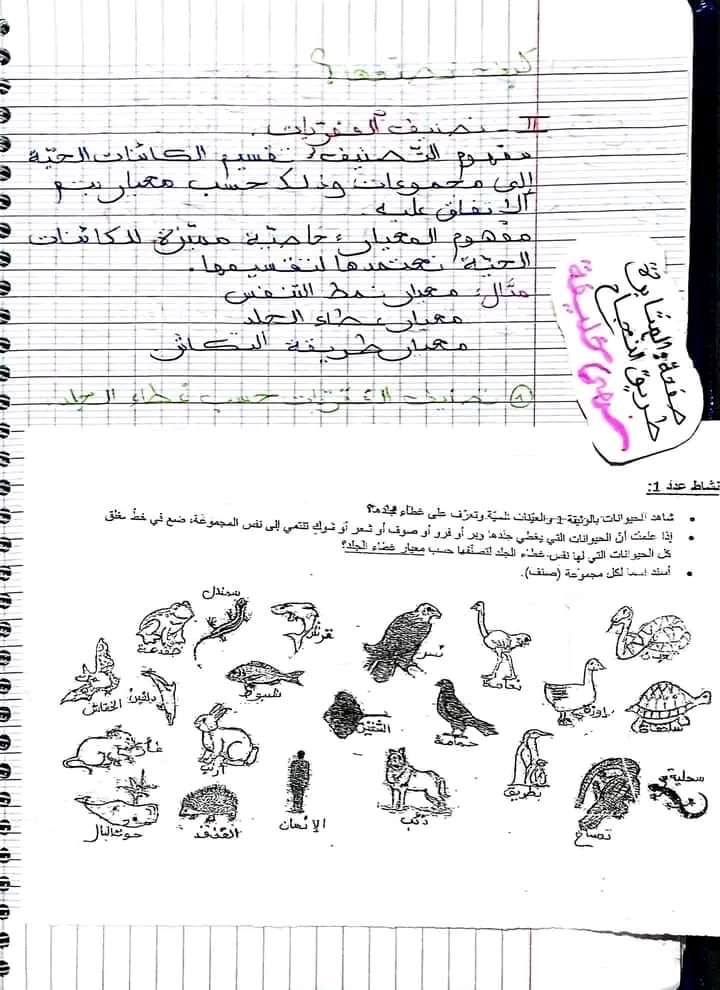 كيف نصنفها؟
II - تصنيف الفقريات.
مفهوم التصنيف: تقسيم الكائنات الحية
إلى مجموعات وذلك حسب معيار يتم
الاتفاق عليه.
مفهوم المعيار: خاصية مميزة للكائنات
الحية نعتمدها لتقسيمها.
مثال: معيار نمط التنفس
معيار غطاء الجلد
معيار طريقة التكاثر
① تصنيف الفقريات حسب غطاء الجلد.
طريق النجاح
نشاط عدد 1:
• شاهد الحيوانات بالوثيقة 1 والعينات الحية وتعرف على غطاء جلدها؟
• إذا علمت أنّ الحيوانات التي يغطي جلدها وبر أو فرو أو صوف أو شعر أو شوك تنتمي إلى نفس المجموعة، ضع في خط مغلق
كل الحيوانات التي لها نفس غطاء الجلد لتصنّفها حسب معيار غطاء الجلد؟
• أسند اسما لكل مجموعة (صنف).
سمندل
ضفدعة
قرش
نسر
نعامة
حية
الخفاش
دلفين
شبوط
حمامة
إوزة
سلحفاة
فأر
أرنب
بطريق
سحلية
حوت البال
القنفذ
الإنسان
ذئب
تمساح